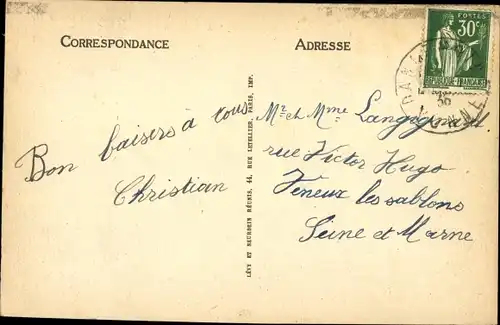 CORRESPONDANCE
ADRESSE
POSTES
30c
RÉPUBLIQUE FRANÇAISE
Bon baisers à tous
Christian
LÉVY ET NEURDEIN RÉUNIS, 44, RUE LETELLIER, PARIS, IMP.
Mr et Mme
rue Victor Hugo
Veneux les sablons
Seine et Marne